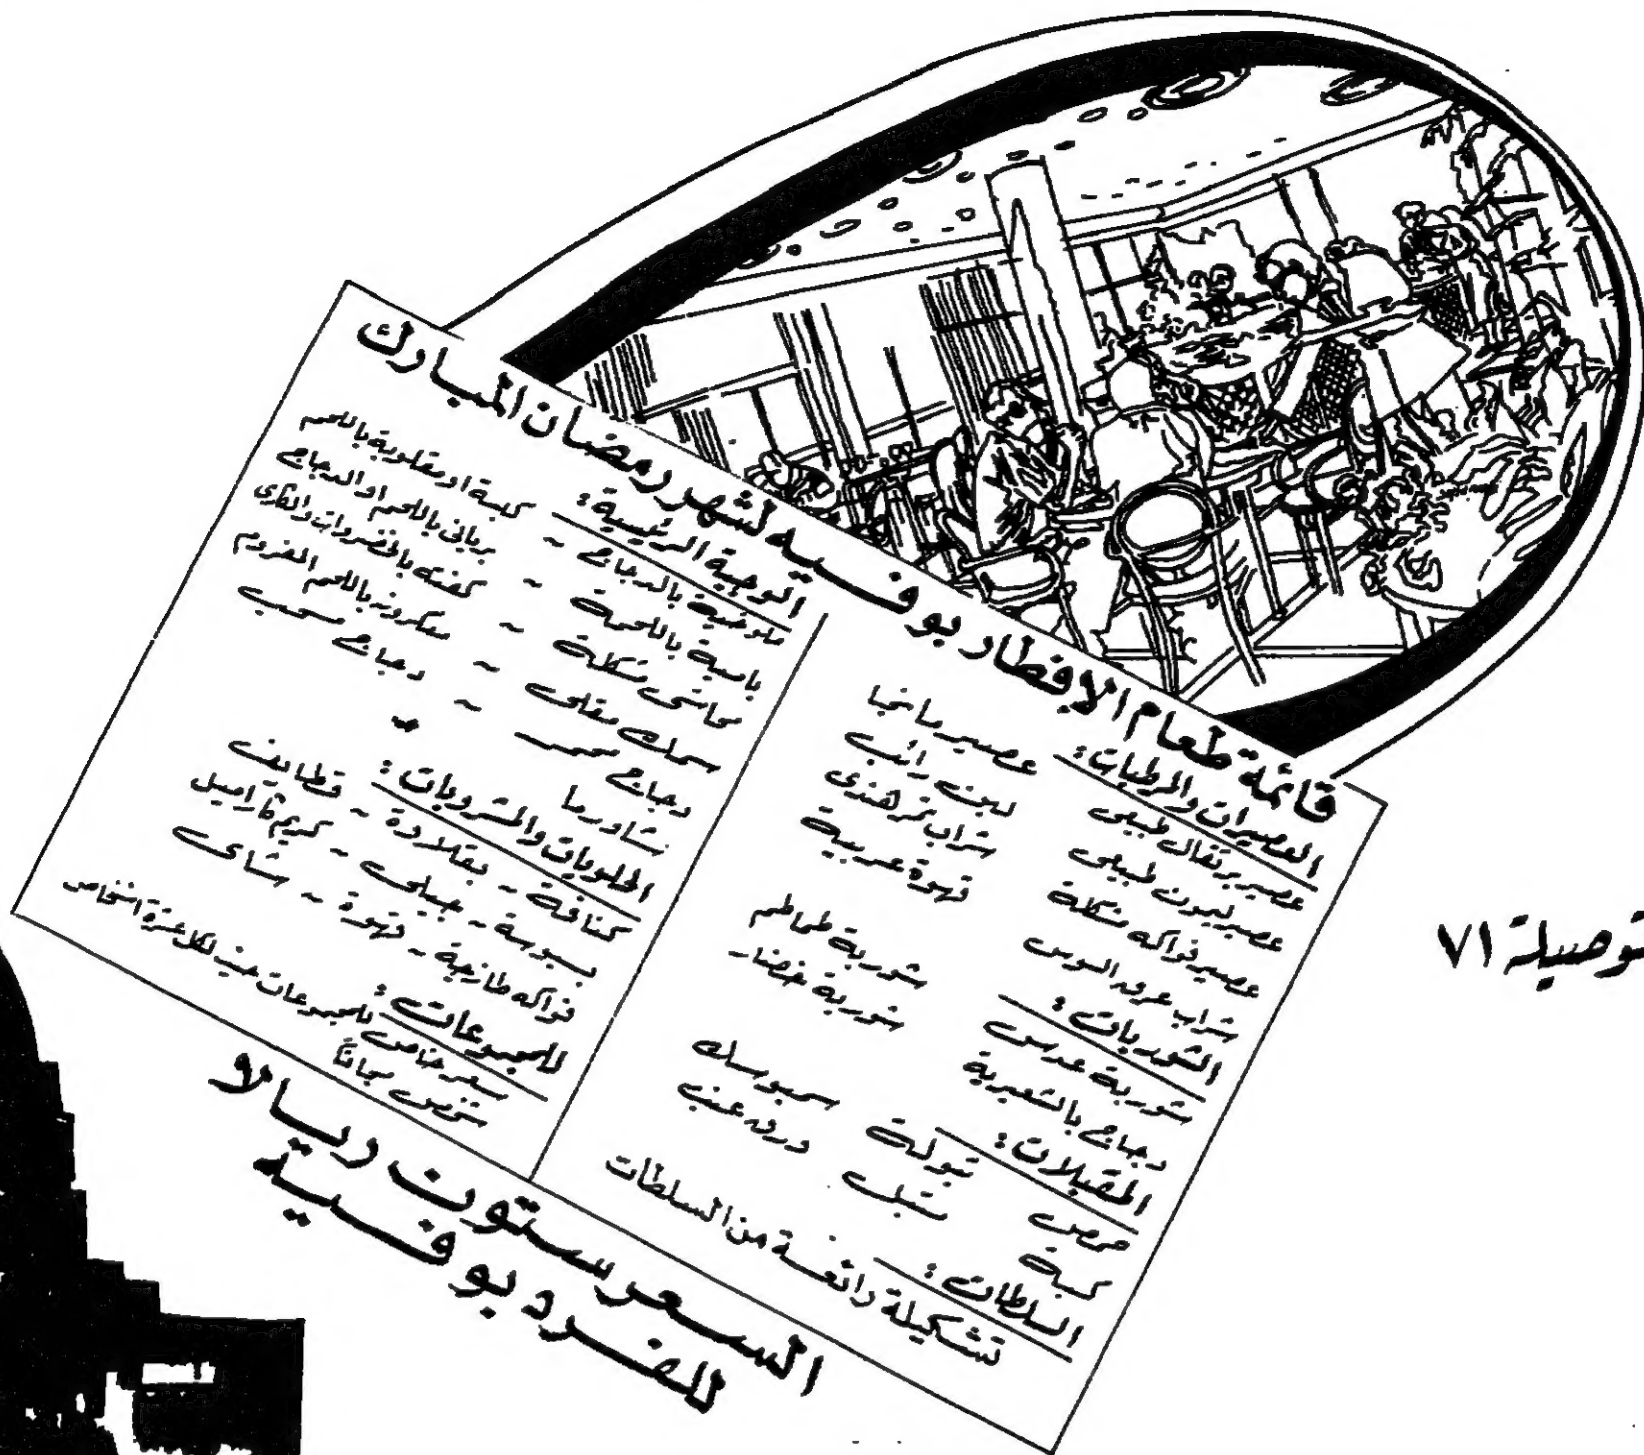 قائمة طعام الإفطار بوفيه لشهر رمضان المبارك
العصيرات والمرطبات:
عصير برتقال طبيعى عصير مانجا
عصير ليمون طبيعى لبن رائب
عصير فواكه مشكلة شراب تمر هندى
شراب عرق السوس قهوة عربية
الشوربات:
شوربة عدس شوربة طماطم
دجاج بالشعيرية شوربة خضار
المقبلات:
حمص تبولة سمبوسك
كبة متبل ورق عنب
السلطات:
تشكيلة رائعة من السلطات
الوجبة الرئيسية:
ملوخية بالدجاج ~ كبسة او مقلوبة باللحم
بامية باللحمة ~ بريانى باللحم او الدجاج
محاشى مشكلة ~ كفته بالخضروات والكارى
سمك مقلى ~ معكرونه باللحم المفروم
دجاج محمر ~ دجاج مسحب
شاورما
الحلويات والمشروبات:
كنافة ~ بقلاوة ~ قطايف
بسبوسة ~ جيلى ~ كريم كاراميل
فواكه طازجة ~ قهوة ~ شاى
للمجموعات:
سعر خاص للمجموعات حيث لكل عشرة اشخاص
شخص مجاناً
السعر ستون ريالا
للفرد بوفيه
توصيلة ٧١